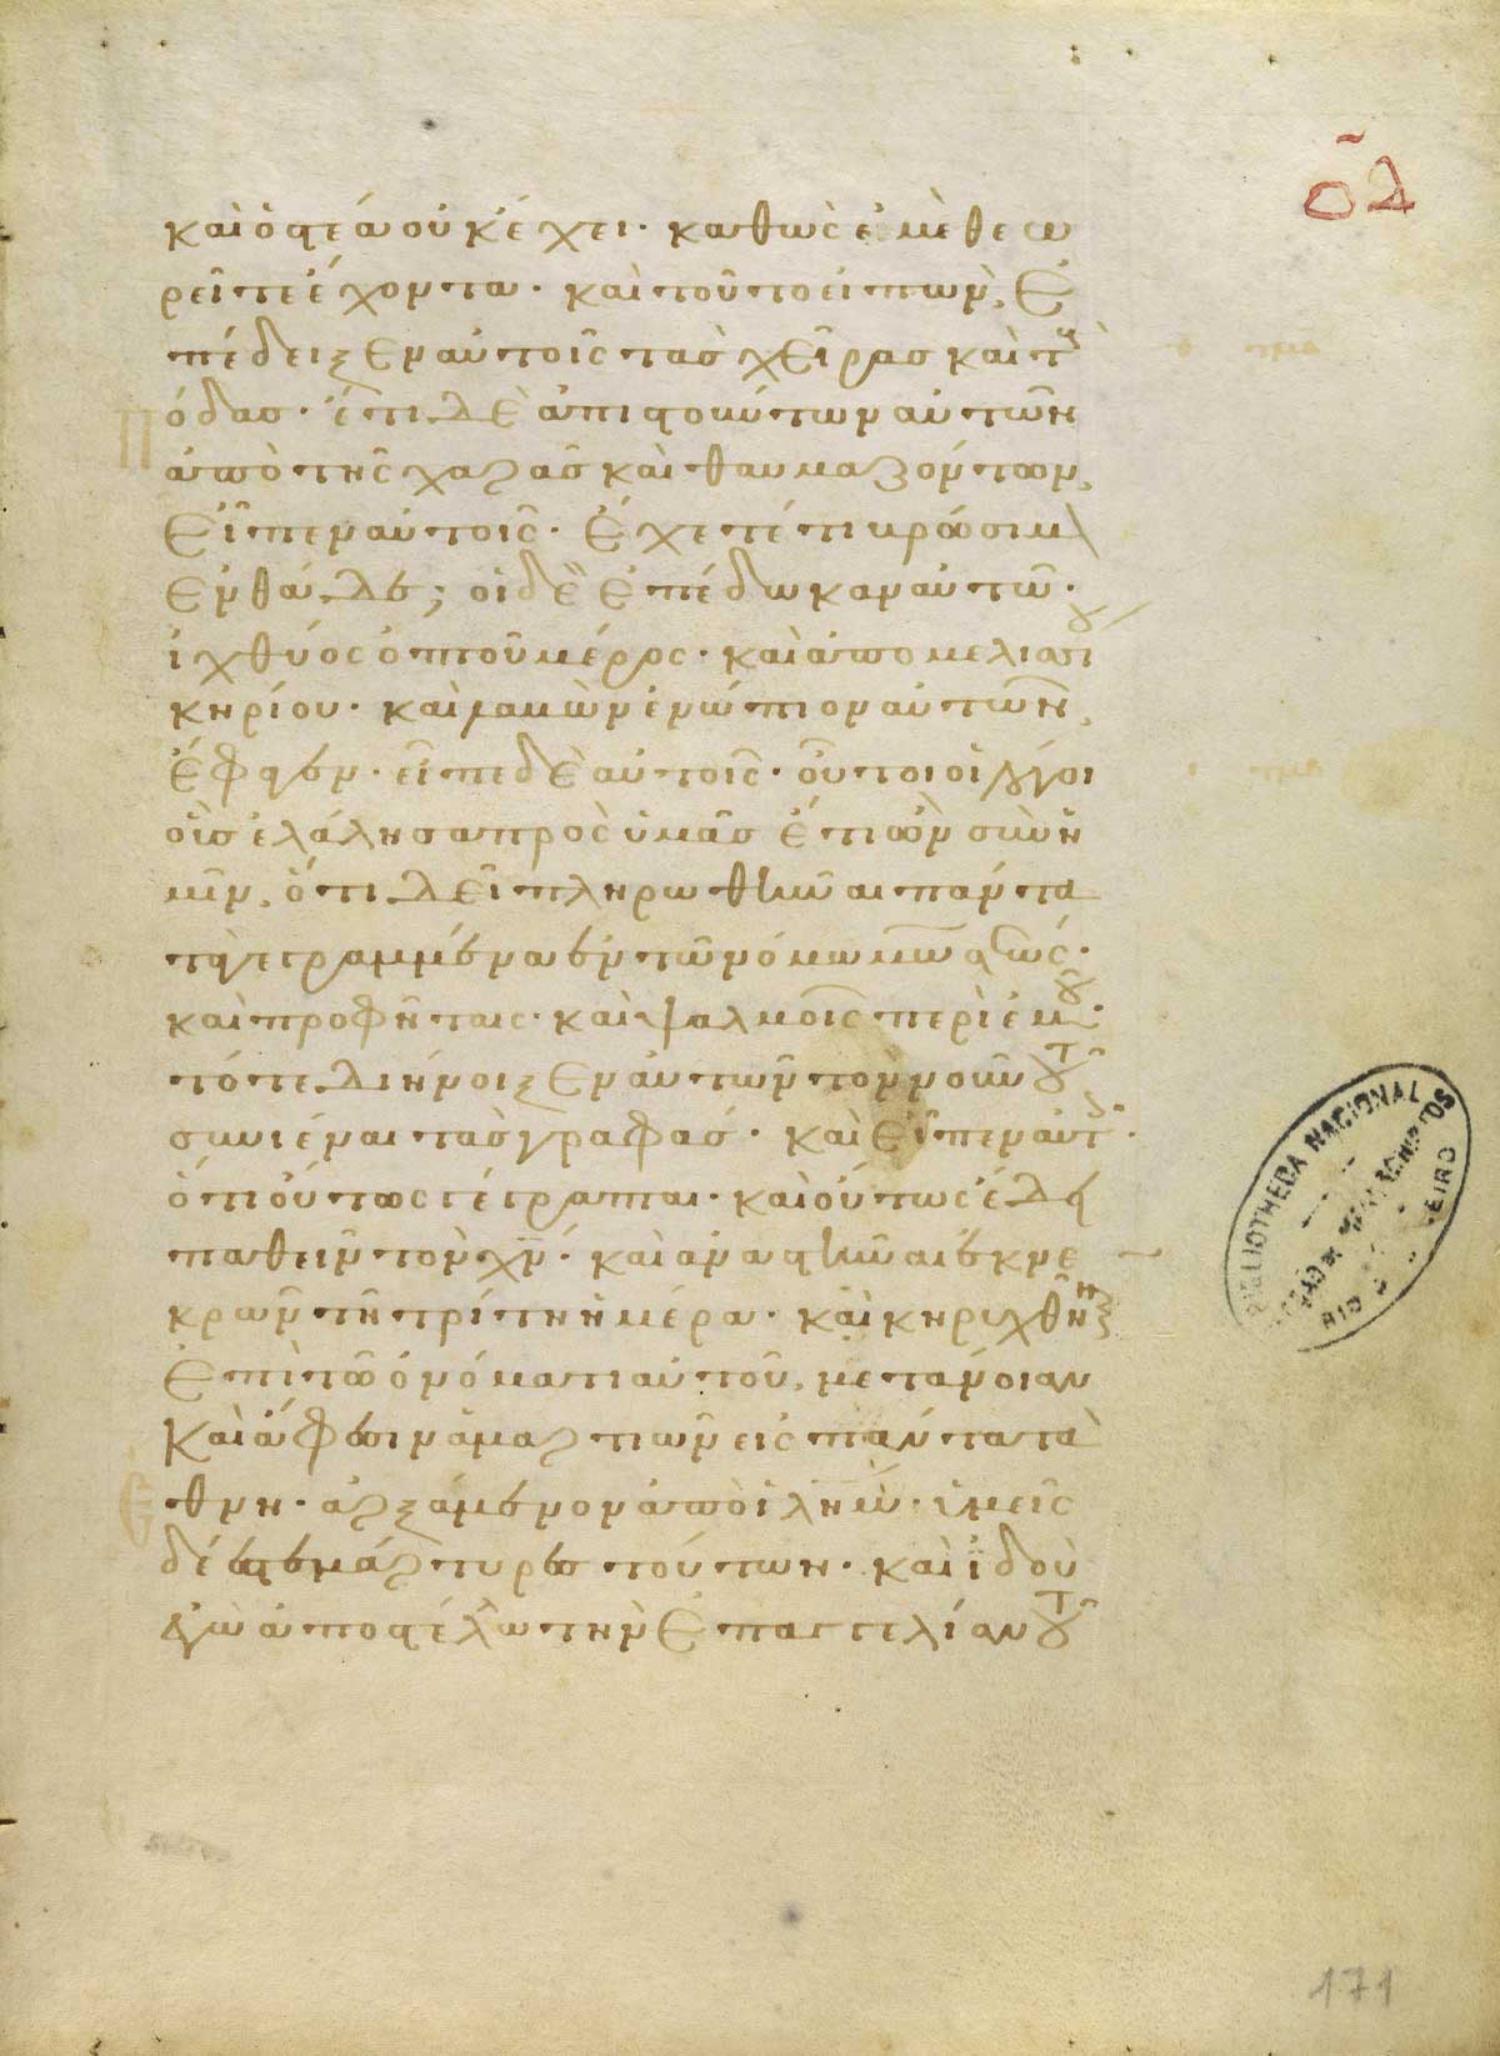 οδ
καὶ ὀστέα οὐκ ἔχει· καθὼς ἐμὲ θεω
ρεῖτε ἔχοντα· καὶ τοῦτο εἰπὼν, ἐ
πέδειξεν αὐτοῖς τὰς χεῖρας καὶ τ(οὺς)
πόδας· ἔτι δὲ ἀπιστούντων αὐτῶν
ἀπὸ τῆς χαρᾶς καὶ θαυμαζόντων,
εἶπεν αὐτοῖς· ἔχετέ τι βρώσιμ(ον)
ἐνθάδε; οἱ δὲ ἐπέδωκαν αὐτῶ·
ἰχθύος ὀπτοῦ μέρος· καὶ ἀπὸ μελισσίου
κηρίου· καὶ λαβὼν ἐνώπιον αὐτῶν,
ἔφαγεν· εἶπε δὲ αὐτοῖς· οὗτοι οἱ λόγοι
οὓς ἐλάλησα πρὸς ὑμᾶς ἔτι ὢν σὺν ὑ
μῖν, ὅτι δεῖ πληρωθῆναι πάντα
τὰ γεγραμμένα ἐν τῶ νόμω μωσέως·
καὶ προφήταις· καὶ ψαλμοῖς περὶ ἐμοῦ·
τότε διήνοιξεν αὐτῶν τὸν νοῦν τοῦ
συνιέναι τὰς γραφάς· καὶ εἶπεν αὐτοῖς·
ὅτι οὕτως γέγραπται· καὶ οὕτως ἔδει
παθεῖν τὸν χν· καὶ ἀναστῆναι ἐκ νε
κρῶν τῆ τρίτη ἡμέρα· καὶ κηρυχθῆναι
ἐπὶ τῶ ὀνόματι αὐτοῦ, μετάνοιαν
καὶ ἄφεσιν ἁμαρτιῶν εἰς πάντα τὰ
ἔθνη· ἀρξάμενον ἀπὸ ιλημ· ὑμεῖς
δέ ἐστε μάρτυρες τούτων· καὶ ἰδοὺ
ἐγὼ ἀποστέλλω τὴν ἐπαγγελίαν τοῦ
BIBLIOTHECA NACIONAL
RIO
171